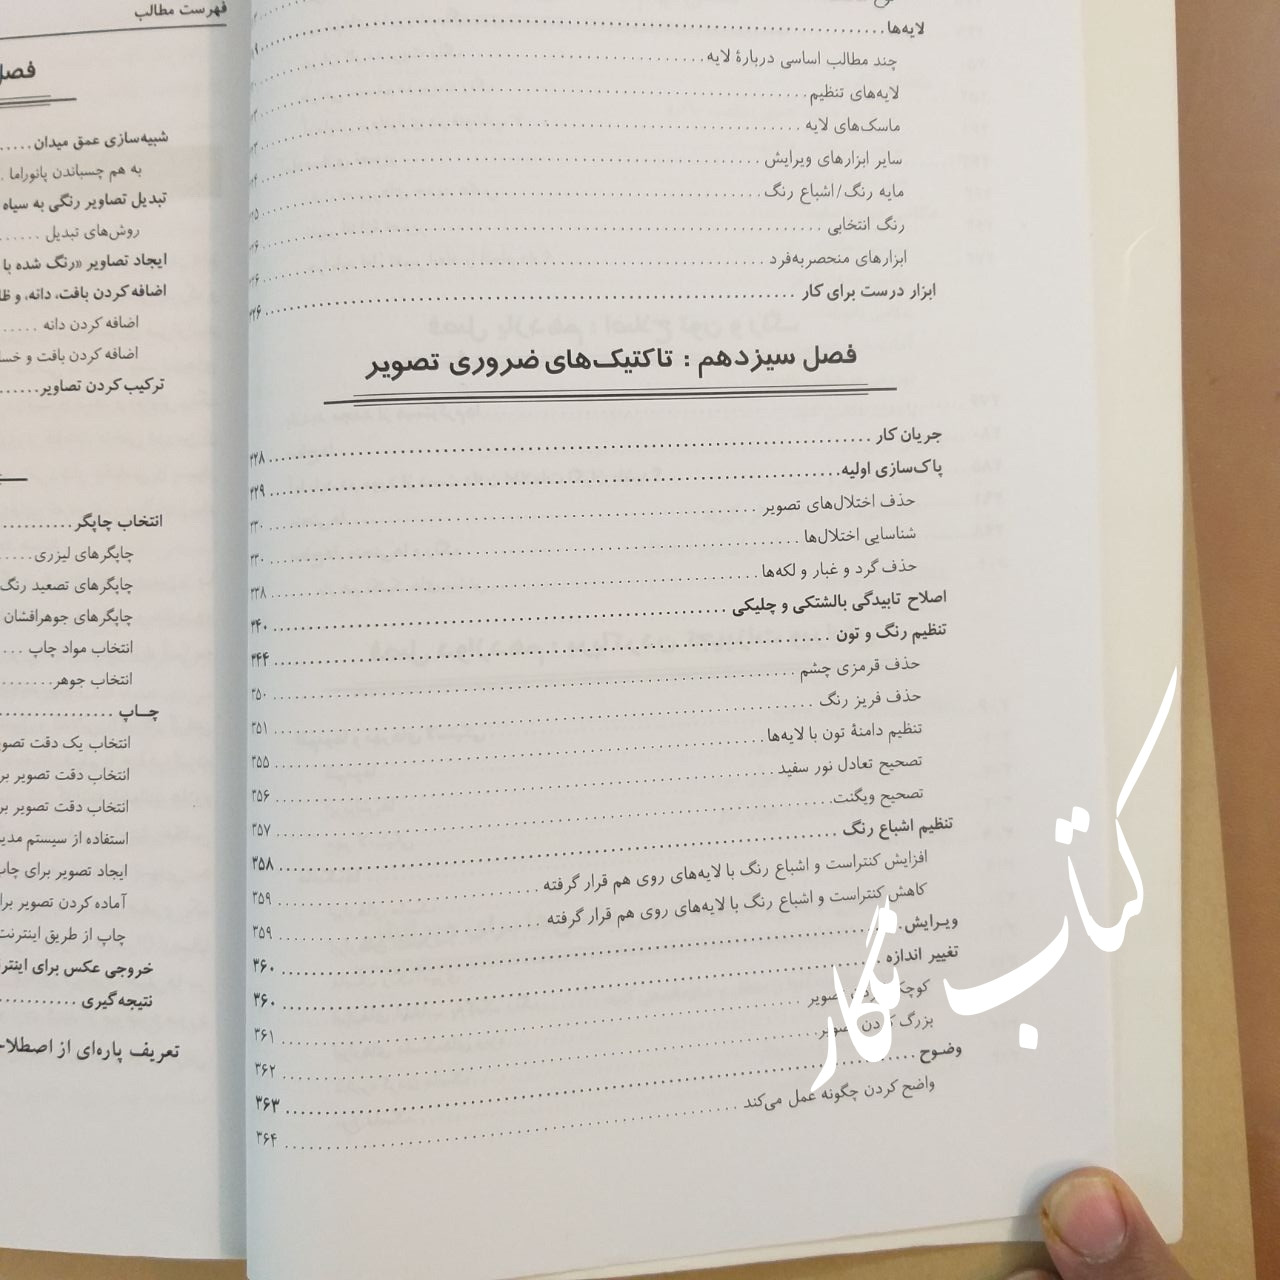 لایه‌ها
چند مطالب اساسی دربارهٔ لایه
لایه‌های تنظیم
ماسک‌های لایه
سایر ابزارهای ویرایش
مایه رنگ/اشباع رنگ
رنگ انتخابی
ابزارهای منحصربه‌فرد
ابزار درست برای کار
فصل سیزدهم : تاکتیک‌های ضروری تصویر
جریان کار ۳۲۸
پاک‌سازی اولیه ۳۲۹
حذف اختلال‌های تصویر ۳۳۰
شناسایی اختلال‌ها ۳۳۰
حذف گرد و غبار و لکه‌ها ۳۳۸
اصلاح تابیدگی بالشتکی و چلیکی ۳۴۰
تنظیم رنگ و تون ۳۴۴
حذف قرمزی چشم ۳۵۰
حذف فریز رنگ ۳۵۱
تنظیم دامنهٔ تون با لایه‌ها ۳۵۵
تصحیح تعادل نور سفید ۳۵۶
تصحیح ویگنت ۳۵۷
تنظیم اشباع رنگ ۳۵۸
افزایش کنتراست و اشباع رنگ با لایه‌های روی هم قرار گرفته ۳۵۹
کاهش کنتراست و اشباع رنگ با لایه‌های روی هم قرار گرفته ۳۵۹
ویرایش ۳۶۰
تغییر اندازه ۳۶۰
کوچک کردن تصویر ۳۶۱
بزرگ کردن تصویر ۳۶۲
وضوح ۳۶۳
واضح کردن چگونه عمل می‌کند ۳۶۴
فهرست مطالب
فصل
شبیه‌سازی عمق میدان
به هم چسباندن پانوراما
تبدیل تصاویر رنگی به سیاه
روش‌های تبدیل
ایجاد تصاویر «رنگ شده با
اضافه کردن بافت، دانه، و
اضافه کردن دانه
اضافه کردن بافت و
ترکیب کردن تصاویر
انتخاب چاپگر
چاپگرهای لیزری
چاپگرهای تصعید رنگ
چاپگرهای جوهرافشان
انتخاب مواد چاپ
انتخاب جوهر
چــاپ
انتخاب یک دقت
انتخاب دقت تصویر
انتخاب دقت تصویر
استفاده از سیستم
ایجاد تصویر برای
آماده کردن تصویر
چاپ از طریق اینترنت
خروجی عکس برای
نتیجه‌گیری
تعریف پاره‌ای از
کتاب نگار